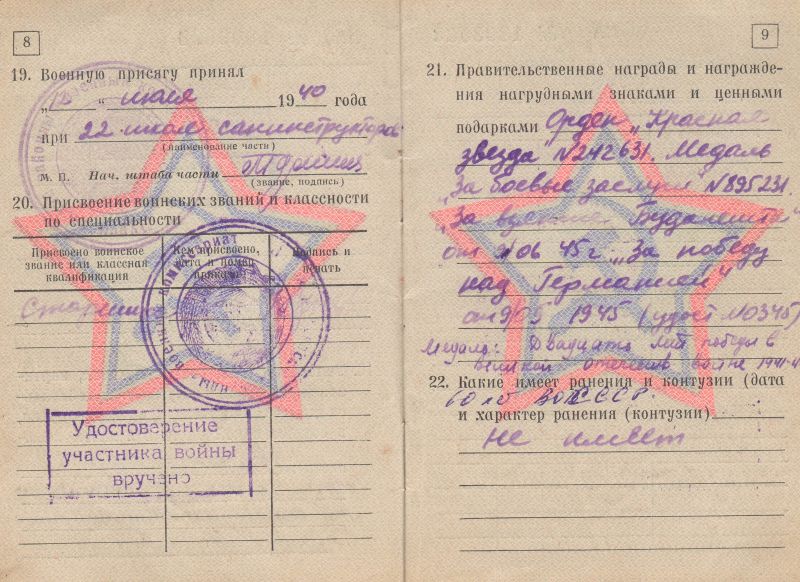 8
19. Военную присягу принял
„10“ июля 1940 года
при 22 школе санинструкторов
(наименование части)
М. П. Нач. штаба части
(звание, подпись)
20. Присвоение воинских званий и классности
по специальности
Присвоено воинское звание или классная квалификация
Кем присвоено, дата и номер приказа
Подпись и печать
Военный комиссариат
Удостоверение
участника войны
вручено
9
21. Правительственные награды и награжде-
ния нагрудными знаками и ценными
подарками Орден „Красная
звезда" N 242631. Медаль
„За боевые заслуги" N 895231
„За взятие Будапешта"
от 9/06 45 г „За победу
над Германией"
от 9/09 1945 (удост N 0345)
Медаль: Двадцать лет победы в
Великой отечеств войне 1941-4
22. Какие имеет ранения и контузии (дата
и характер ранения (контузии)
Не имеет